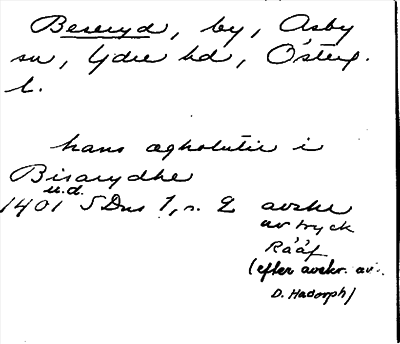 Beseryd, by, Asby
sn, Ydre hd, Österg.
l.
hans ægholutir i
Bisarydhe
u.d.
1401 SDns 1, s. 2 avskr
avtryck
Rääf
(efter avskr. av
D. Hadorph)